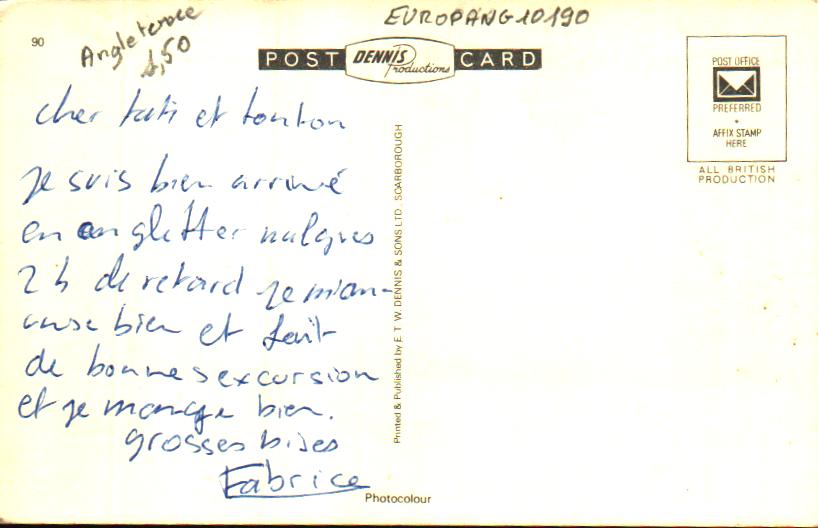 EUROPANG10190
90
Angleterre
1,50
POST DENNIS Productions CARD
POST OFFICE
PREFERRED
AFFIX STAMP
HERE
ALL BRITISH
PRODUCTION
cher tati et tonton
Je suis bien arrivé
en angletter malgres
2 h de retard je mian-
use bien et fait
de bonnes excursion
et je mange bien.
grosses bises
Fabrice
Printed & Published by E. T. W. DENNIS & SONS LTD., SCARBOROUGH
Photocolour